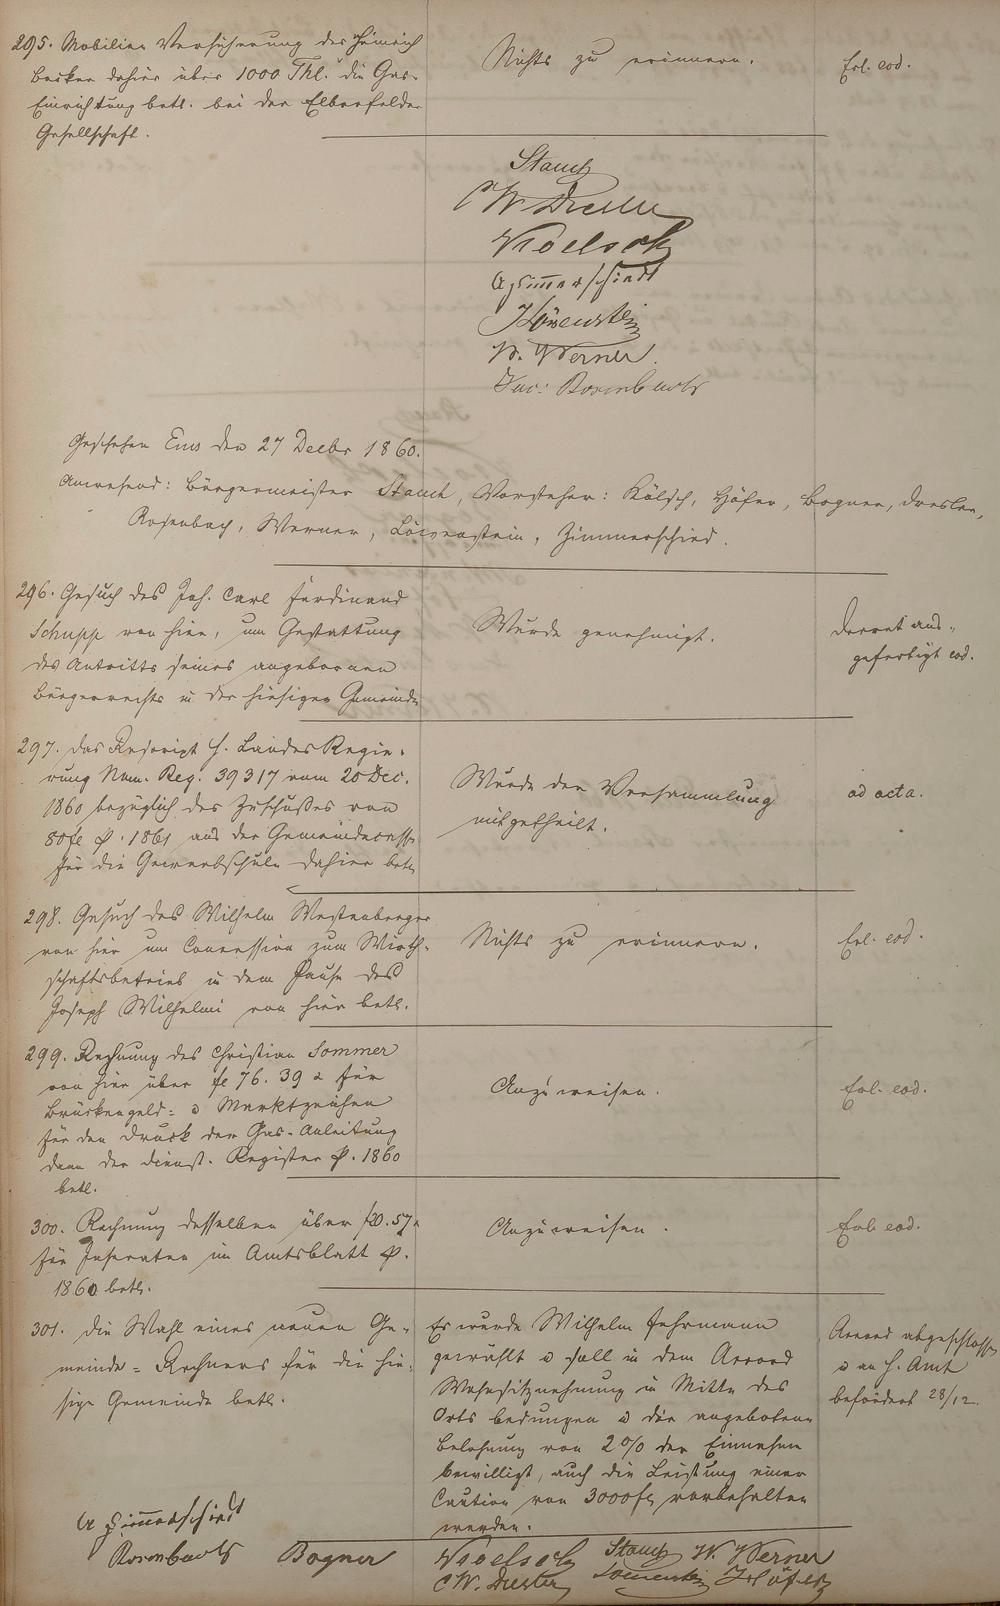 295. Mobiliar Versicherung des Heinrich
Becker dahier über 1000 Thl. die Gas-
Einrichtung betr. bei der Elberfelder
Gesellschaft.
Nichts zu erinnern.
Erl. eod.
Stauch
CW Dresler
Kroelsch
A Zimmerschied
Löwenstein
W. Werner.
Jac: Rosenbach
Geschehen Ems den 27 Decbr 1860.
Anwesend: Bürgermeister Stauch, Vorsteher: Kölsch, Höfer, Bogner, Dresler,
Rosenbach, Werner, Löwenstein, Zimmerschied.
296. Gesuch des Joh. Carl Ferdinand
Schupp von hier, um Gestattung
des Antritts seines angebornen
Bürgerrechts in der hiesigen Gemeinde
Wurde genehmigt.
Decret aus-
gefertigt eod.
297. Das Rescript H. Landes Regie-
rung Num. Reg. 39317 vom 20 Dec.
1860 bezüglich des Zuschußes von
80 fl p. 1861 aus der Gemeindecasse
für die Gewerbschule dahier betr.
Wurde der Versammlung
mitgetheilt.
ad acta.
298. Gesuch des Wilhelm Westenberger
von hier um Concession zum Wirth-
schaftsbetrieb in dem Hause des
Joseph Wilhelmi von hier betr.
Nichts zu erinnern.
Erl. eod.
299. Rechnung des Christian Sommer
von hier über fl 76. 39 x für
Brückengeld- & Marktzeichen
für den Druck der Gas-Anleitung
dann der Dienst-Register p. 1860
betr.
Anzuweisen.
Erl. eod.
300. Rechnung desselben über f20.57x
für Inseraten im Amtsblatt p.
1860 betr.
Anzuweisen.
Erl. eod.
301. Die Wahl eines neuen Ge-
meinde-Rechners für die hie-
sige Gemeinde betr.
Es wurde Wilhelm Fuhrmann
gewählt & soll in dem Accord
Wohnsitznehmung in Mitte des
Orts bedungen & die angebotene
Belohnung von 2% der Einnahme
bewilligt, auch die Leistung einer
Caution von 3000 fl vorbehalten
werden.
Accord abgeschlossen
& an H. Amt
befördert 28/12.
A Zimmerschied
Rosenbach Bogner
Kroelsch Stauch W. Werner
CW. Dresler Löwenstein Höfer